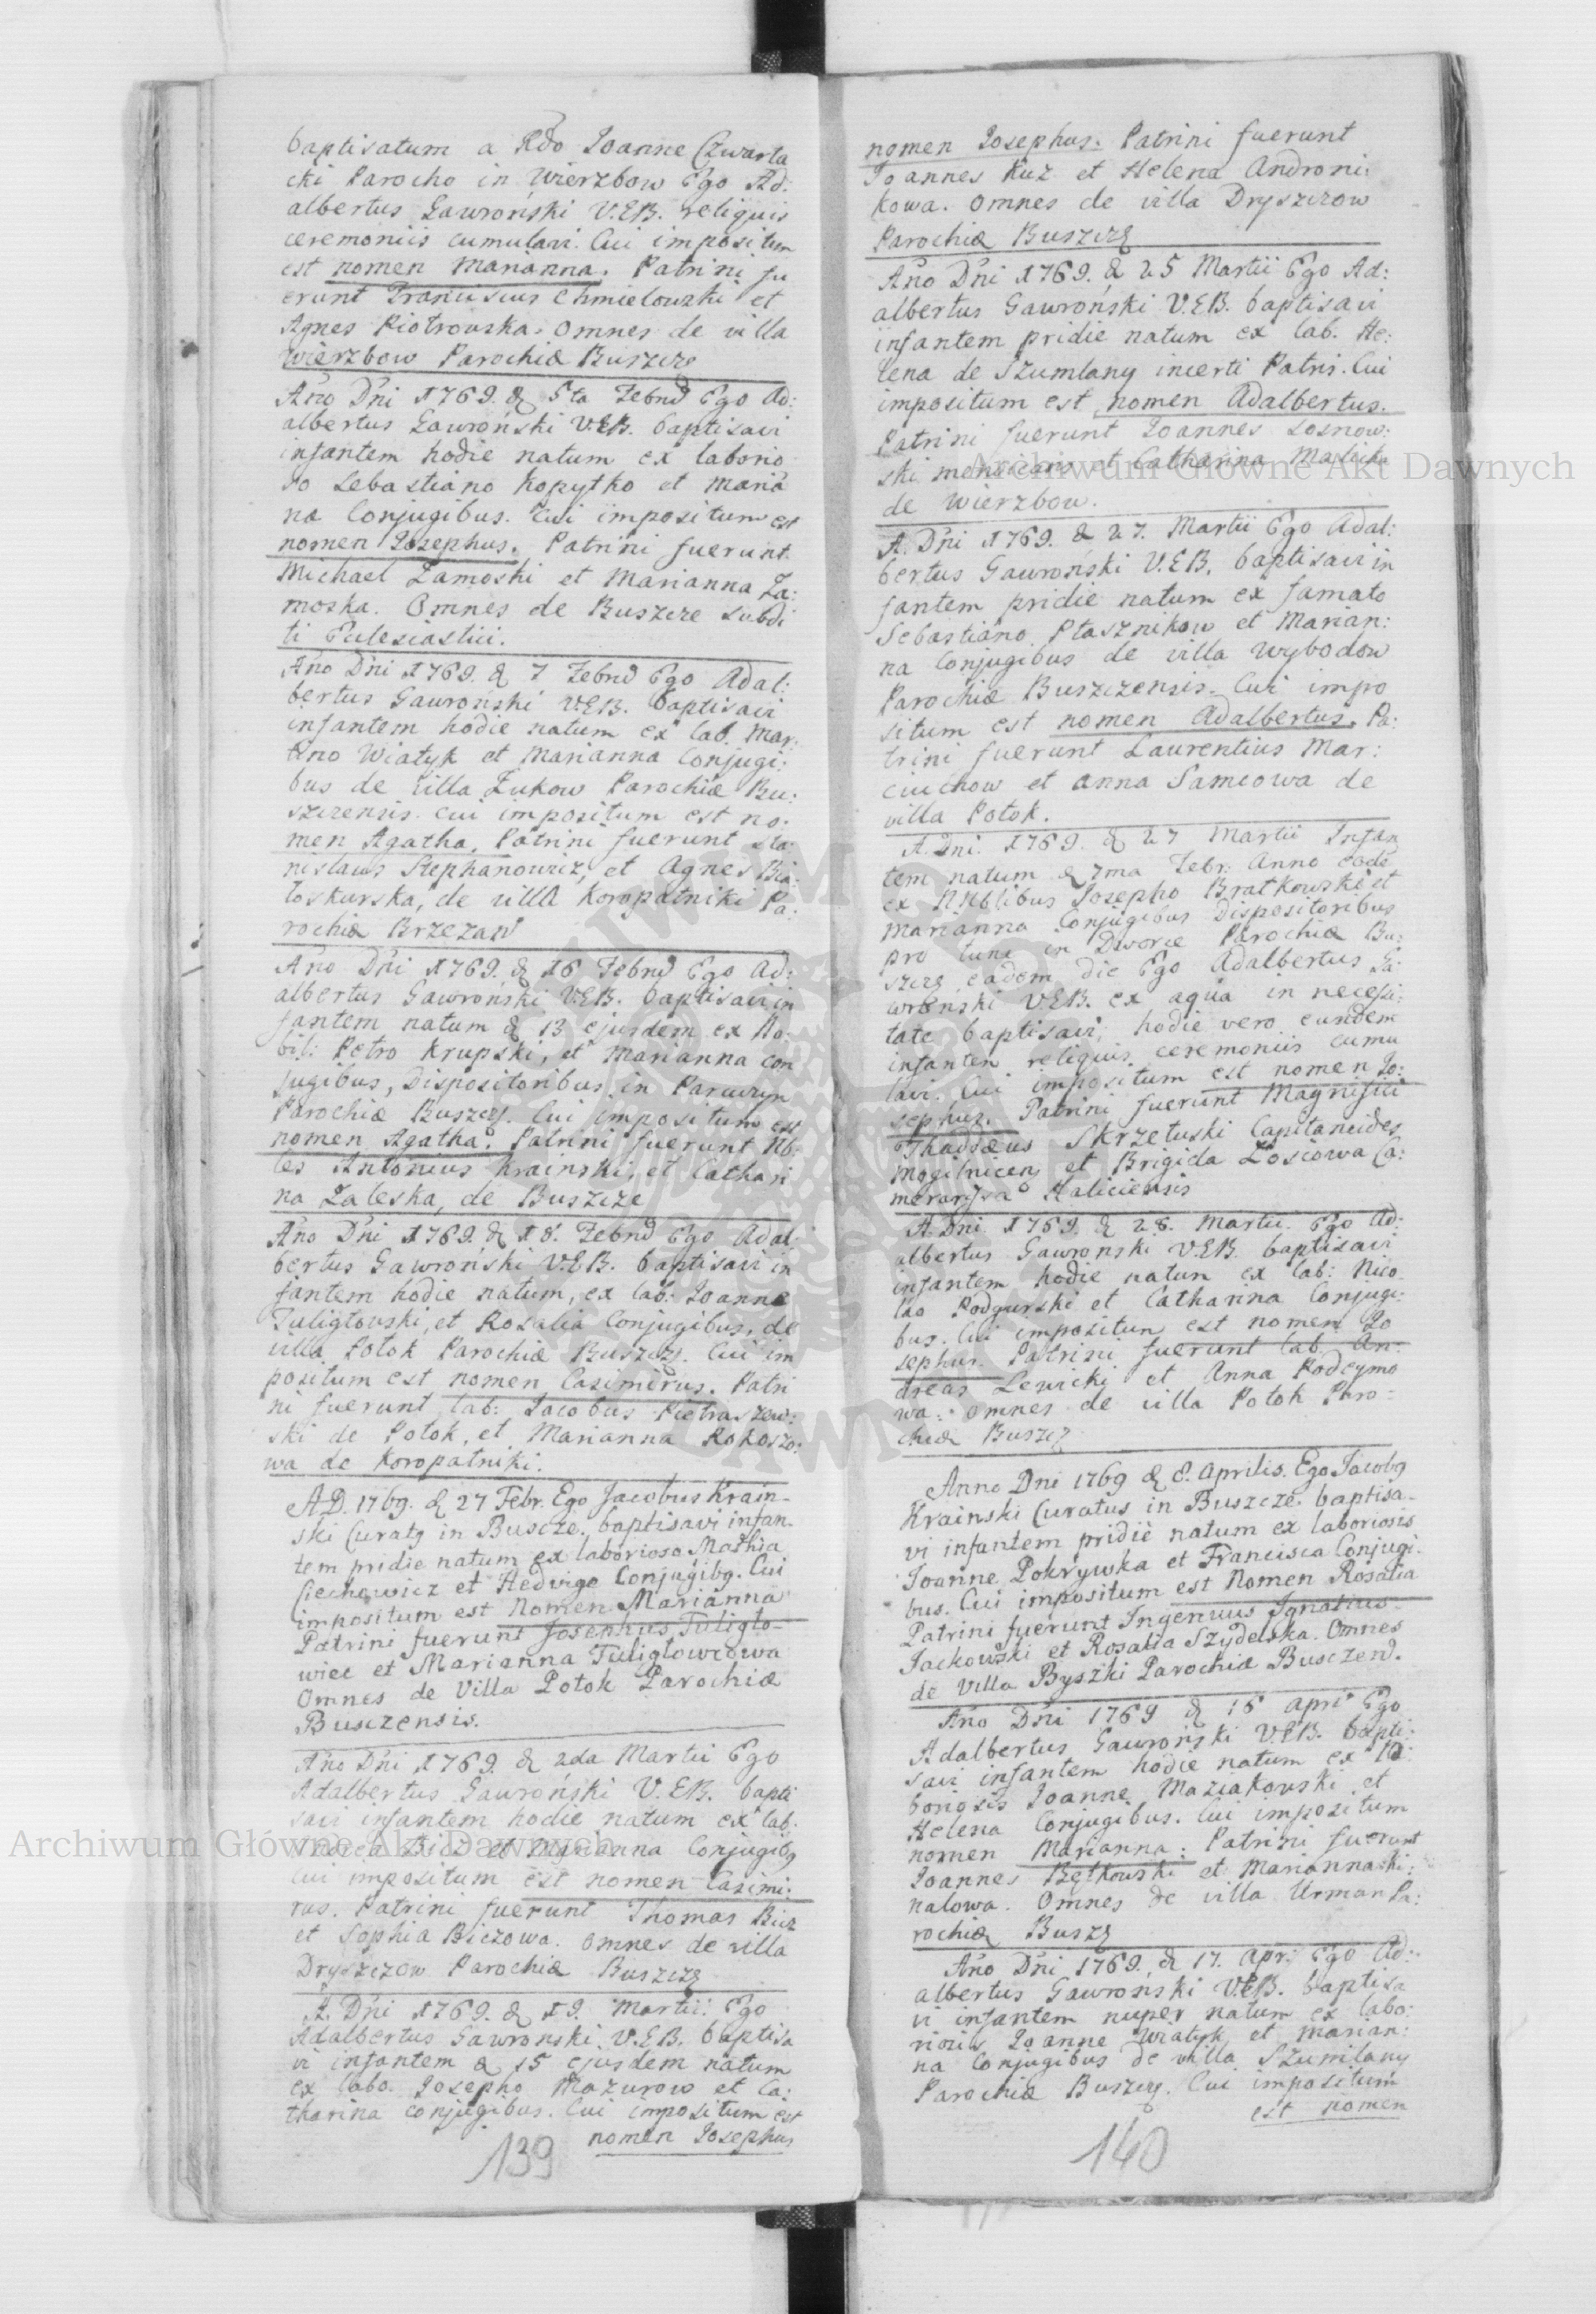 baptisatum a Rdo Ioanne Czwarta
cki Parocho in Wierzbow Ego Ad:
albertus Gawroński V.EB. reliquis
ceremoniis cumulavi. Cui impositum
est nomen Marianna. Patrini fu
erunt Franciscus Chmielowzki et
Agnes Piotrowska. Omnes de villa
Wierzbow Parochiæ Buszcze
Año Dńi 1769. d 5ta Febru Ego Ad:
albertus Gawroński V.EB. baptisavi
infantem hodie natum ex laborio
so Sebastiano Kopytko et Maria
na Conjugibus. Cui impositum est
nomen Iosephus. Patrini fuerunt
Michael Zamoski et Marianna Za:
moska. Omnes de Buszcze subdi
ti Eclesiastici.
Año Dńi 1769. d 7 Febru Ego Adal:
bertus Gawroński V.EB. baptisavi
infantem hodie natum ex lab. Mar:
tino Wiatyk et Marianna Conjugi:
bus de villa Zukow Parochiæ Bu:
szczensis. cui impositum est no:
men Agatha. Patrini fuerunt Sta:
nislaus Stephanowicz, et Agnes Bia:
loskurska, de villa Koropatniki Pa:
rochiæ Brzezan
Año Dńi 1769. d 16 Febru Ego Ad:
albertus Gawroński V.EB. baptisavi in
fantem natum d 13 ejusdem ex No:
bili Petro Krupski, et Marianna con
jugibus, Dispositoribus in
Parochiæ Buszcz. Cui impositum est
nomen Agatha. Patrini fuerunt Nb:
les Antonius Krainski, et Cathari
na Zaleska, de Buszcze
Año Dńi 1769. d 18. Febru Ego Adal:
bertus Gawroński V.EB. baptisavi in
fantem hodie natum, ex lab: Ioanne
Tuliglowski, et Rosalia Conjugibus, de
villa Potok Parochiæ Buszcz. Cui im
positum est nomen Casimirus. Patri
ni fuerunt lab: Iacobus Pietraszew:
ski de Potok, et Marianna Rokoszo:
wa de Koropatniki.
A.D. 1769. d 27 Febr. Ego Jacobus Krain-
ski Curatq in Buscze. baptisavi infan-
tem pridie natum ex laborioso Mathia
Ciechowicz et Hedvige Conjugibq. Cui
impositum est Nomen Marianna
Patrini fuerunt Josephus Tuliglo-
wiec et Marianna Tuliglowcowa
Omnes de Villa Potok Parochiæ
Busczensis.
Año Dńi 1769. d 2da Martii Ego
Adalbertus Gawroński V.EB. bapti
savi infantem hodie natum ex lab.
Andrea Bicz et Marianna Conjugibq
Cui impositum est nomen Casimi:
rus. Patrini fuerunt Thomas Bicz
et Sophia Biczowa. Omnes de villa
Dryszczow Parochiæ Buszcz
A. Dńi 1769. d 19. Martii Ego
Adalbertus Gawroński V.EB. baptisa
vi infantem d 15 ejusdem natum
ex labo. Iosepho Mazurow et Ca:
tharina conjugibus. Cui impositum est
nomen Iosephus
139
nomen Iosephus. Patrini fuerunt
Ioannes Kuz et Helena Androni:
kowa. Omnes de villa Dryszczow
Parochiæ Buszcz
Año Dńi 1769. d 25 Martii Ego Ad:
albertus Gawroński V.EB. baptisavi
infantem pridie natum ex lab. He:
lena de Szumlany incerti Patris. Cui
impositum est nomen Adalbertus.
Patrini fuerunt Ioannes Sosnow:
ski et Catharina
de Wierzbow.
A. Dńi 1769. d 27. Martii Ego Adal:
bertus Gawroński V.EB. baptisavi in
fantem pridie natum ex famato
Sebastiano Ptasznikow et Marian:
na Conjugibus de villa Wybodow
Parochiæ Buszczensis. Cui impo
situm est nomen Adalbertus. Pa:
trini fuerunt Laurentius Mar:
ciuchow et Anna Samcowa de
villa Potok.
A. Dni. 1769. d 27 Martii Infan
tem natum d 7ma Febr. Anno eode
ex NNblibus Iosepho Bratkowski et
Marianna Conjugibus Dispositoribus
pro tunc in Dworce Parochiæ Bu:
szcz, eadem die Ego Adalbertus Ga:
wroński V.EB. ex aqua in necessi:
tate baptisavi, hodie vero eundem
infantem reliquis ceremoniis cumu
lavi. Cui impositum est nomen Io:
sephus. Patrini fuerunt Magnifici
Thaddæus Skrzetuski Capitaneides
Mogilnicen et Brigida Łosiowa Ca:
merarysa Haliciensis
A. Dni. 1769. d 28. Martii. Ego Ad:
albertus Gawronski V.EB. baptisavi
infantem hodie natum ex lab: Nico
lao Podgurski et Catharina Conjugi:
bus. Cui impositum est nomen Io
sephus. Patrini fuerunt lab. An:
dreas Lewicki et Anna Podeymo
wa. Omnes de villa Potok Paro-
chiæ Buszcz
Anno Dni 1769 d 8. Aprilis. Ego Jacobq
Krainski Curatus in Buszcze. baptisa-
vi infantem pridie natum ex laboriosis
Joanne Pokrywka et Francisca Conjugi-
bus. Cui impositum est Nomen Rosalia
Patrini fuerunt Ingenuus Ignatius
Jackowski et Rosalia Szydelska. Omnes
de Villa Byszki Parochiæ Busczen.
Año Dńi 1769 d 16 Apri Ego
Adalbertus Gawroński V.EB. bapti:
savi infantem hodie natum ex la:
boriosis Ioanne Maziakowski et
Helena Conjugibus. Cui impositum
nomen Marianna. Patrini fuerunt
Ioannes Bętkowski et Marianna
nalowa. Omnes de villa Urman Pa:
rochiæ Buszcz
Año Dńi 1769. d 17. Apr. Ego Ad:
albertus Gawroński V.EB. baptisa
vi infantem nuper natum ex labo:
riosis Ioanne Wiatyk et Marian:
na Conjugibus de villa Szumlany
Parochiæ Buszcz. Cui impositum
est nomen
140
Archiwum Główne Akt Dawnych
Archiwum Główne Akt Dawnych